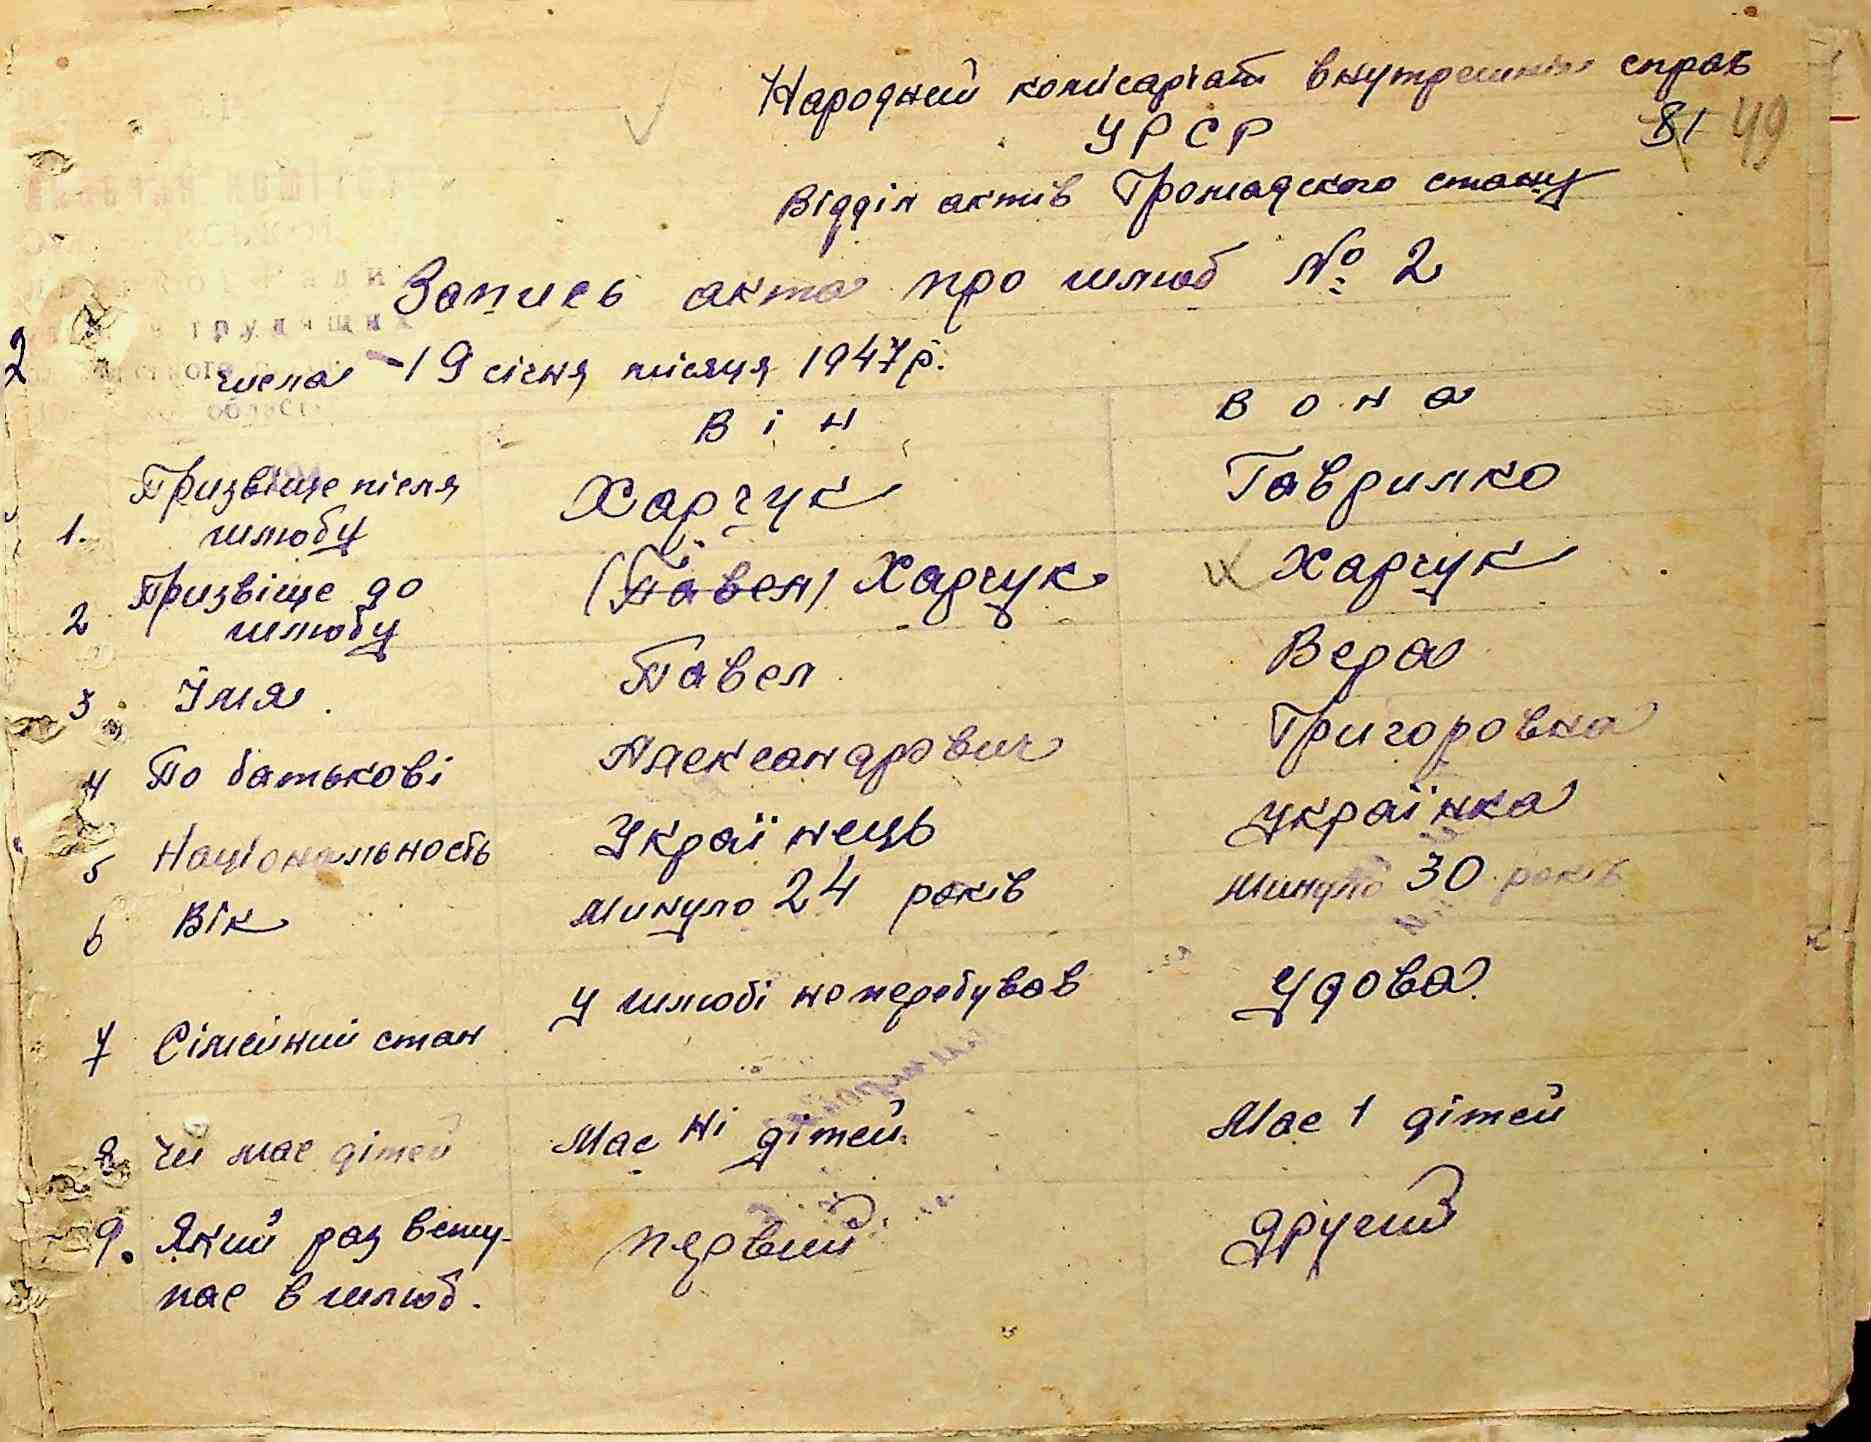 Народний комісаріат внутрешніх справ
УРСР
81 49
Відділ актів Громадского стану
Запись акта про шлюб № 2
трудящих
2
числа - 19 січня місяця 1947 р.
Він Вона
1. Призвіще після шлюбу Харчук Гаврилко
2 Призвіще до шлюбу (Павел) Харчук Харчук
3 Їмя. Павел Вера
4 По батькові Александрович Григоровна
5 Національность Українець Українка
6 Вік минуло 24 років минуло 30 років
7 Сімейний стан У шлюбі не перебував Удова
8 Чи має дітей Має ні дітей Має 1 дітей
9. Який раз всту-
пає в шлюб. первий другий